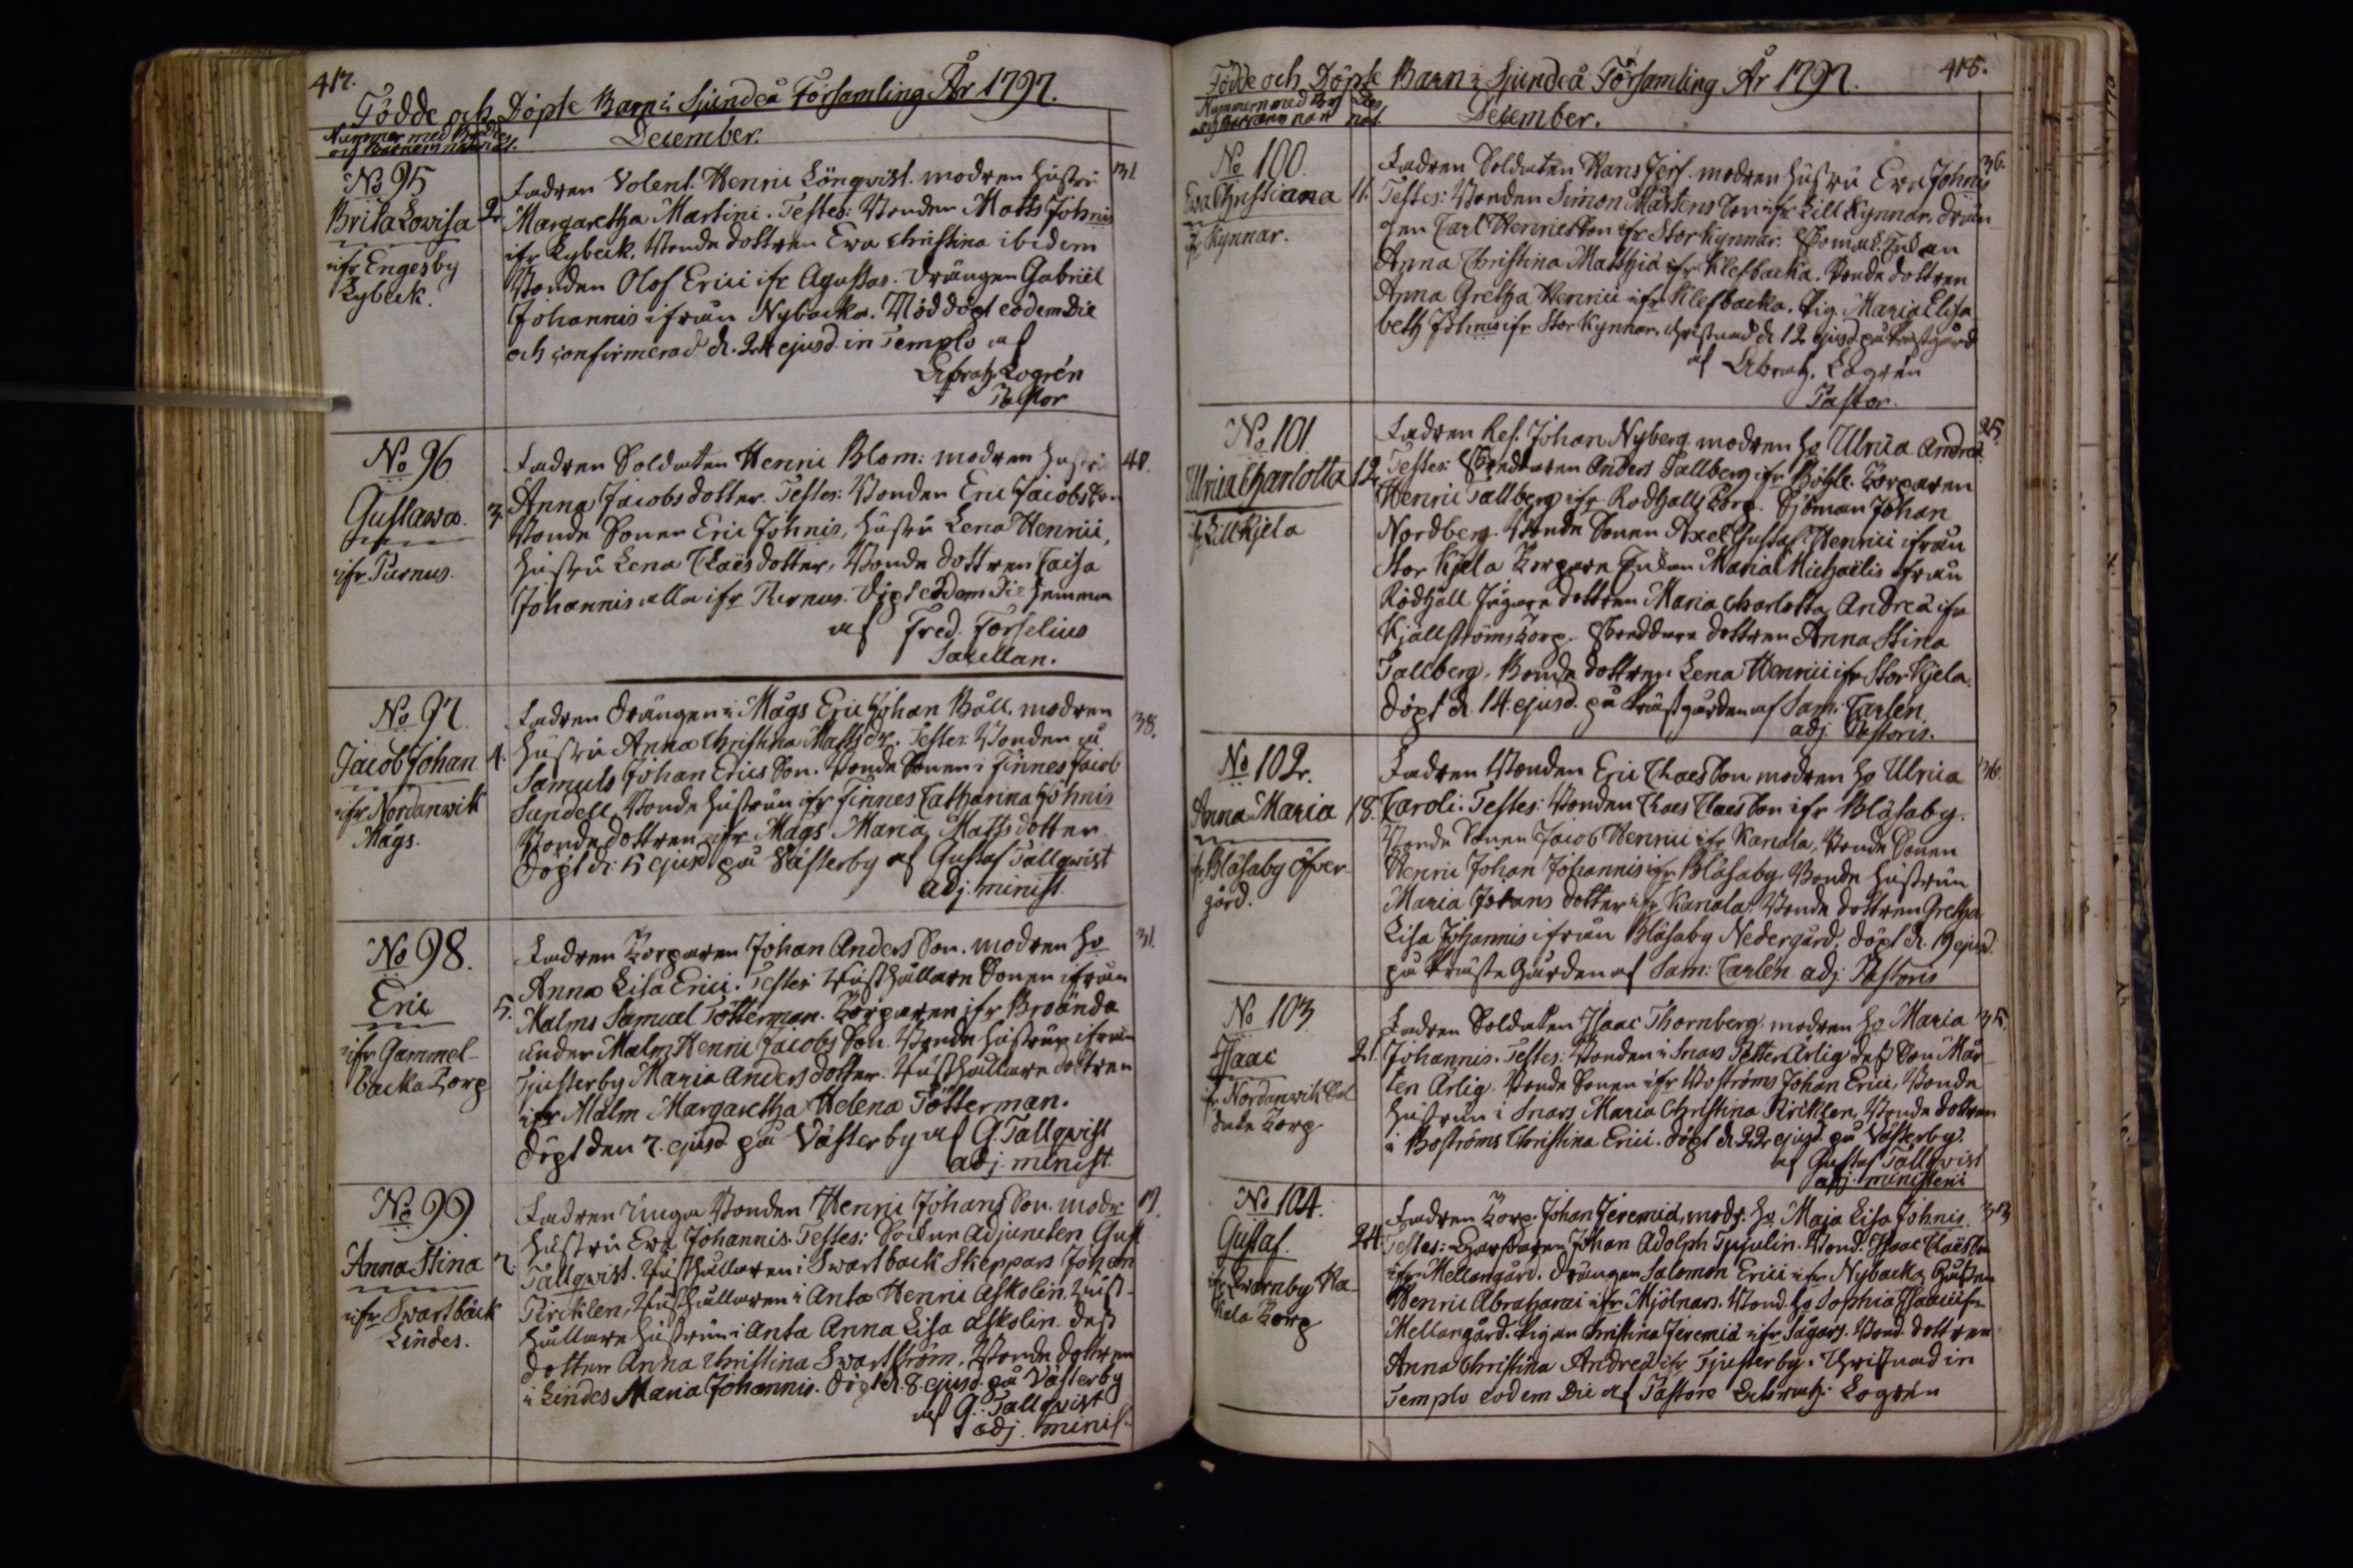 417.
Födde och Döpte Barn i Sjundeå Församling År 1797.
December.
No 95
Brita Lovisa
ifr Engesby
Rybeck.
2.
Fadren Volent. Henric Lönqvist. modren hustru
31
Margaretha Martini. Testes: Bonden Matts Johnis
ifr Rybeck. Bonde dottren Eva Christina ibidem
Bonden Olof Erici ifr Agustas. Drängen Gabriel
Johannis ifrån Nybacka. Nöddöpt eodem Die
och confirmerad d. 24 ejusd. in Templo af
Abrah. Logrén
Pastor
No 96
Gustawa.
ifr Purnus.
3.
Fadren Soldaten Henric Blom: modren hustru
40.
Anna Jacobsdotter. Testes: Bonden Eric Jacobsson
Bonde Sonen Eric Johnis, hustru Lena Henrici,
hustru Lena Claësdotter, Bonde dottren Caisa
Johannis alla ifr Purnus. Döpt eodem Die hemma
af Fred. Forselius
Sacellan.
No 97.
Jacob Johan
ifr Nordanwik
Mågs.
4.
Fadren Drängen i Mågs Eric Johan Båll. modren
38.
hustru Anna Christina Mattsdr. Testes: Bonden
Samuls Johan Ericsson. Bonde Sonen i Finnes Jacob
Sundell, Bonde hustrun ifr Finnes Catharina Johnis
Bonde dottren ifr Mågs Maria Mattsdotter
döpt d. 5 ejusd på Västerby af Gustaf Tallqvist
adj. minist.
No 98.
Eric
ifr Gammel-
backa Torp
5.
Fadren Torparen Johan Andersson. modren ho
31.
Anna Lisa Erici. Testes Rusthållare Sonen ifrån
Malms Samuel Tötterman. Torparen ifr Broända
under Malm Henric Jacobsson. Bonde hustrun ifrån
Tjusterby Maria Andersdotter. Rusthållare dottren
ifr Malm Margaretha Helena Tötterman.
döpt den 7. ejusd på Västerby af G. Tallqvist
adj. minist.
No 99.
Anna Stina
ifr Swartbäck
Lindes.
7.
Fadren unga Bonden Henric Johansson. modr
hustru Eva Johannis. Testes: Sockne Adjuncten Gust
Tallqwist. Rusthållaren i Swartback Skeppars Johan
Pircklen, Rusthållaren i Anta Henric Askolin. Rust-
hållare hustrun i Anta Anna Lisa Askolin dess
dotter Anna Christina Swartström. Bonde dottren
i Lindes Maria Johannis. döpt d. 8. ejusd. på Västerby
af G. Tallqvist
adj. minis.
418.
Födde och Döpte Barn i Sjundeå Församling År 1797.
December.
No 100.
Eva Christiana
ifr Kynnar.
11.
Fadren Soldaten Hans Jerf. modren hustru Eva Johnis
36.
Testes: Bonden Simon Mårtensson ifr Lill Kynnar. drän
gen Carl Henricsson ifr Stor Kynnar.
Anna Christina Matthiæ ifr Klefbacka. Bonde dottren
Anna Gretha Henrici ifr Klefbacka. Pig. Maria Elisa
beth Johnis ifr Stor Kynnar. Christnad d 12 ejusd på Prästgård
af Abrah. Logrén
Pastor.
No 101
Ulrica Charlotta
ifr Lill Kjela
12.
Fadren Ref. Johan Nyberg. modren ho Ulrica Andreæ
25.
Testes: Anders Tallberg ifr Böhle. Torparen
Henric Tallberg ifr Rödhäll Torp. Sjöman Johan
Nordberg. Bonde Sonen Axel Gustaf Henrici ifrån
Stor Kjela Torpare Enkan Maria Michaëlis ifrån
Rödhäll Jägare dottren Maria Charlotta Andreæ ifr
Kjällströms Torp. dottren Anna Stina
Tallberg. Bonde dottren Lena Henrici ifr Stor Kjela.
döpt d. 14 ejusd. på Prästgården af Sam: Carlén
adj. Pastoris.
No 102.
Anna Maria
ifr Blåsaby Öfver
gård.
18.
Fadren Bonden Eric Claesson modren ho Ulrica
36.
Caroli. Testes: Bonden Claes Claesson ifr Blåsaby.
Bonde Sonen Jacob Henrici ifr Kanala, Bonde Sonen
Henric Johan Johannis ifr Blåsaby, Bonde hustrun
Maria Johansdotter ifr Kanala, Bonde dottren Gretha
Lisa Johannis ifrån Blåsaby Nedergård. döpt d. 19 ejusd.
på Präste Gården af Sam: Carlén adj. Pastoris
No 103
Isaac
ifr Nordanwik Sol
date Torp
21.
Fadren Soldaten Isaac Thornberg. modren ho Maria
35.
Johannis. Testes: Bonden i Snars Petter Ärlig dess Son Mår
ten Ärlig. Bonde Sonen ifr Boströms Johan Erici, Bonde
hustrun i Snars Maria Christina Pircklen, Bonde dottren
i Boströms Christina Erici. döpt d 22 ejusd. på Västerby.
af Gustaf Tallqvist
adj. ministerii
No 104.
Gustaf.
ifr Qvarnby
Torp
24.
Fadren Torp. Johan Jeremiæ, modr. ho Maja Lisa Johnis.
33
Testes: Johan Adolph Tujulin. Bond. Isaac Claësson
ifr Mellangård. Drängen Salomon Erici ifr Nybacka
Henric Abrahami ifr Mjölnars. Bond. ho Sophia Isaaci ifr
Mellangård. Pigan Christina Jeremiæ ifr Sågars. Bond. dottren
Anna Christina Andreæ ifr Tjusterby. Christnad in
Templo eodem Die af Pastore Abrah: Logrén